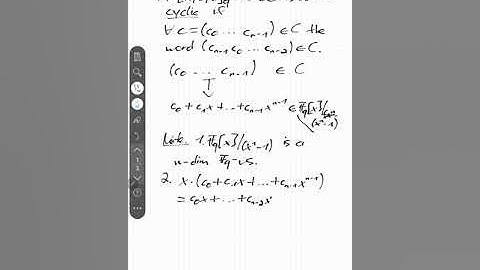 cyclic if
∀ c = (c₀ ... cₙ₋₁) ∈ C the
word (cₙ₋₁ c₀ ... cₙ₋₂) ∈ C.
(c₀ ... cₙ₋₁) ∈ C
↧
c₀ + c₁x + ... + cₙ₋₁xⁿ⁻¹ ∈ 𝔽q[x]/(xⁿ-1)
Note. 1. 𝔽q[x]/(xⁿ-1) is a
n-dim 𝔽q-vs.
2. x·(c₀ + c₁x + ... + cₙ₋₁xⁿ⁻¹)
= c₀x + ... + cₙ₋₂x